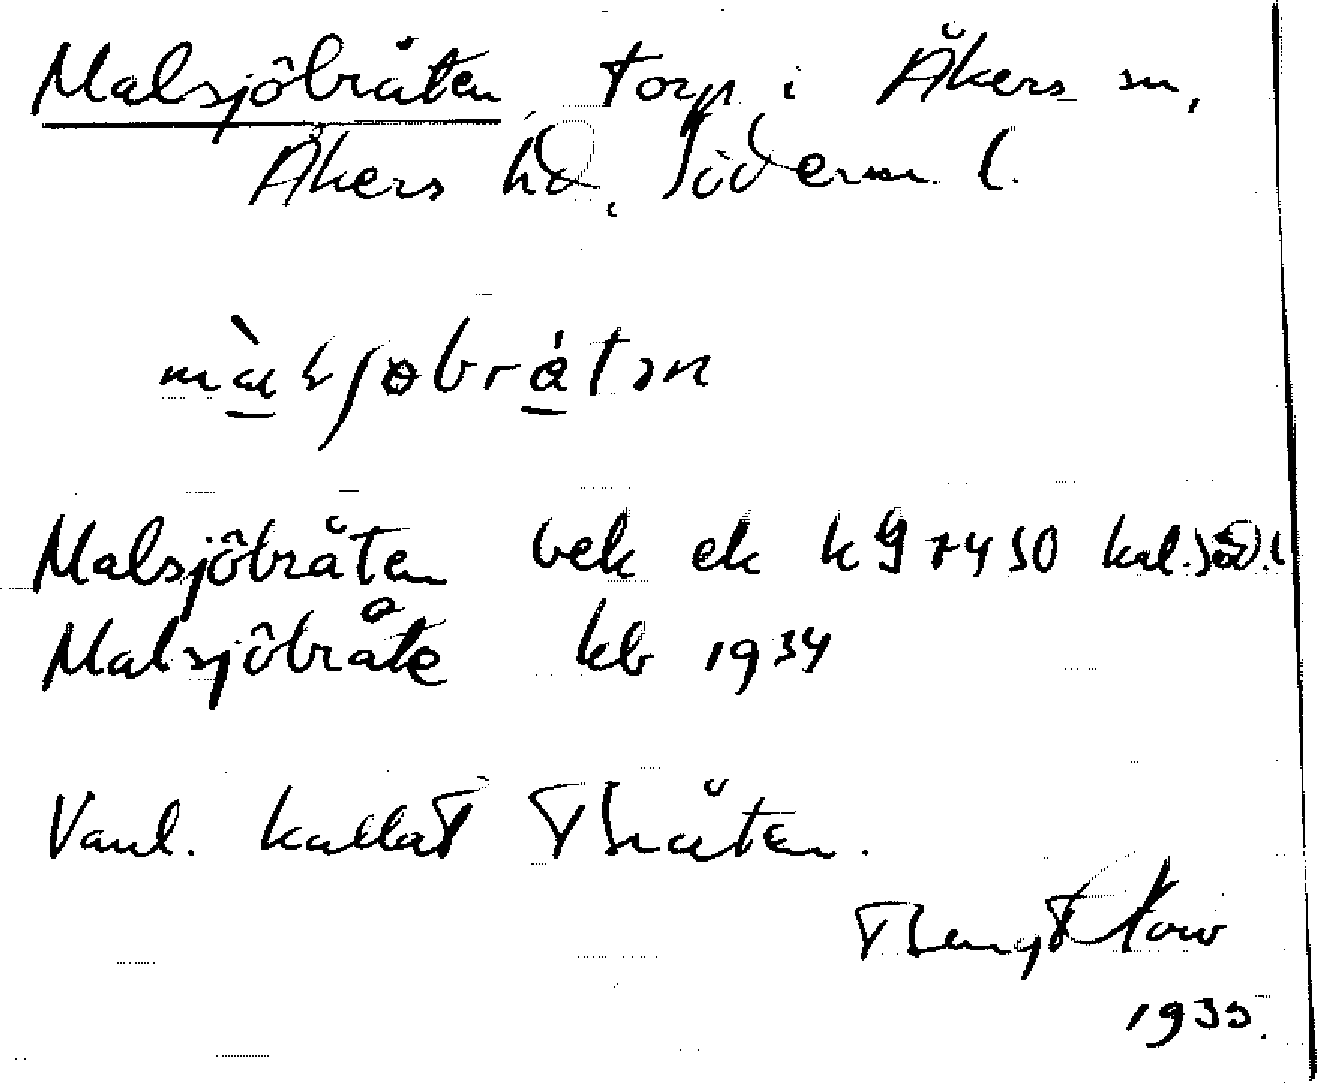 Malsjöbråten, torp i Åkers sn,
Åkers hd, Söderm. l.
Malsjöbråten bek ek kg 7450 kal.
Malsjöbråte kb 1934
Vanl. kallat Bråten.
Bengt
1935.